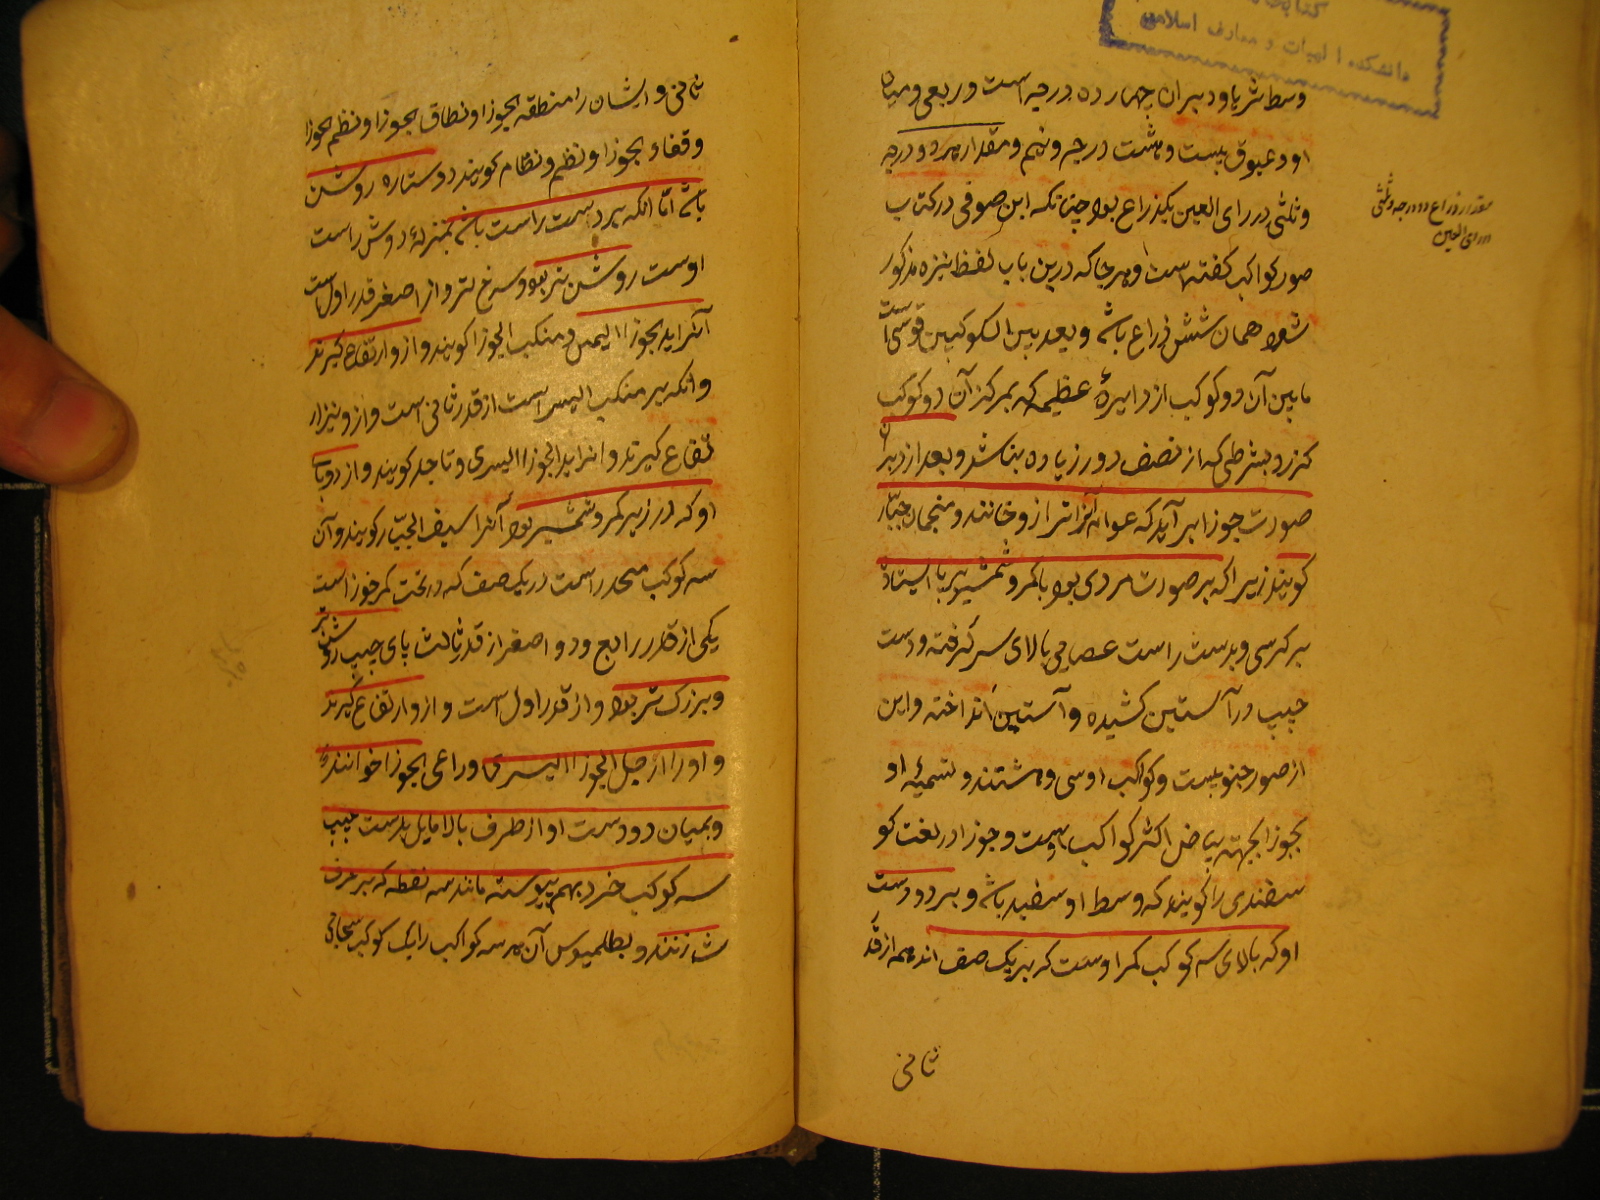 دانشکده الهیات و معارف اسلامی
وسط ثریا و دبران چهارده درجه است و ربعی و میان
او و عیوق بیست و هشت درجه و نیم و مقدار هر دو درجه
و ثلثی در رای العین یکذراع بود چنانکه ابن صوفی در کتاب
صور کواکب کفته است و هر جا که درین باب لفظ نیزه مذکور
شود همان شش ذراع باشد و بعد بین الکوکبین قوسی است
مابین آن دو کوکب از دایرهٔ عظیمه که بمرکز آن دو کوکب
کزرد بشرطی که از نصف دور زیاده نباشد و بعد از دبران
صورت جوزا برآید که عوام آنرا ترازو خوانند و منجمان جبار
کویند زیرا که بر صورت مردی بود با کمر و شمشیر بر پا ایستاده
بر کرسی و بدست راست عصایی بالای سر کرفته و دست
چپ در آستین کشیده و آستین انداخته و این
از صور جنوبیست و کواکب او سی و هشتند و تسمیهٔ او
بجوزا بجهت بیاض اکثر کواکب اوست و جوزا در لغت کو
سفندی را کویند که وسط او سفید باشد و بر دو دست
او که بالای سه کوکب کمر اوست که بر یک صف اند همه از قدر
ثانی
مقدار ذراع دو درجه و ثلثی
در رای العین
ثانی و ایشان را منطقه الجوزا و نطاق الجوزا و نظم الجوزا
و قفاء الجوزا و نظم و نظام کویند دو ستاره روشن
باشد اما انکه بر دست راست باشد بمنزلهٔ دوش راست
اوست روشن تر بود و سرخ تر و از اصغر قدر اول است
آنرا ید الجوزاا الیمنی و منکب الجوزا کویند و ازو ارتفاع کیرند
و انکه بر منکب الیسر است از قدر ثانی است و ازو نیز ار
تفاع کیرند و انرا ید الجوزاا الیسری و ناجد کویند و از دو پای
او که در زیر کمر و شمشیر بود آنرا سیف الجبار کویند و آن
سه کوکب منحدر است در یک صف که در تحت کمر جوزاست
یکی از قدر رابع و دو اصغر از قدر ثالث پای چپ روشن تر
و بزرک تر بود و از قدر اول است و ازو ارتفاع کیرند
و او را رجل الجوزاا الیسری و راعی الجوزا خوانند
و بمیان دو دست او از طرف بالا مایل بدست چپ
سه کوکب خرد بهم پیوسته مانند سه نقطه که بر حرف
ش زنند و بطلمیوس آن هر سه کواکب را یک کوکب سحابی